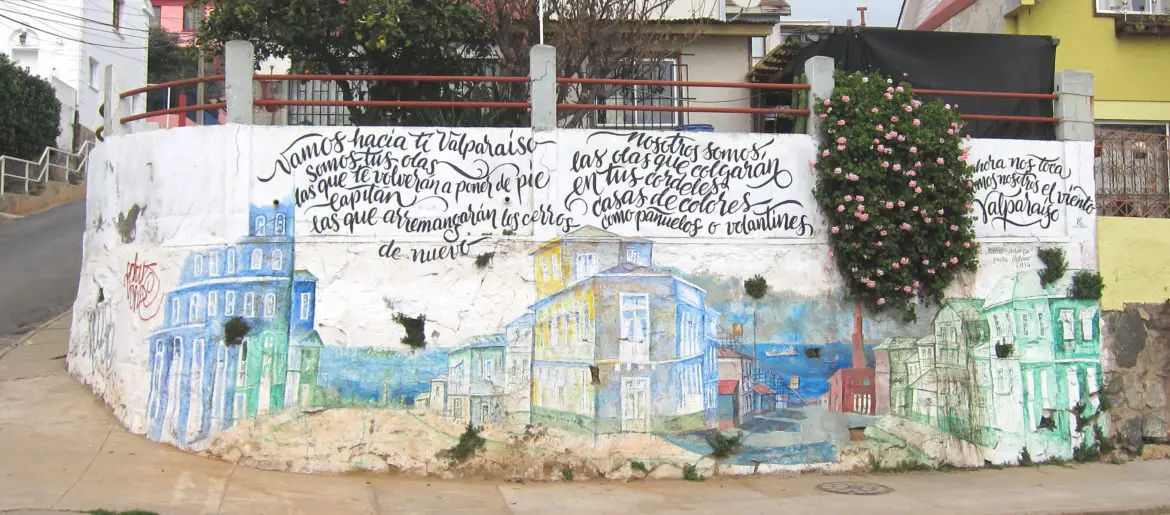 Vamos hacia ti Valparaíso
somos tus olas
las que te volverán a poner de pie
capitán
las que arremangarán los cerros
de nuevo
nosotros somos
las olas que colgarán
en tus cordeles
casas de colores
como pañuelos o volantines
ahora nos toca
nosotros el viento
Valparaíso
poeta chileno
2014